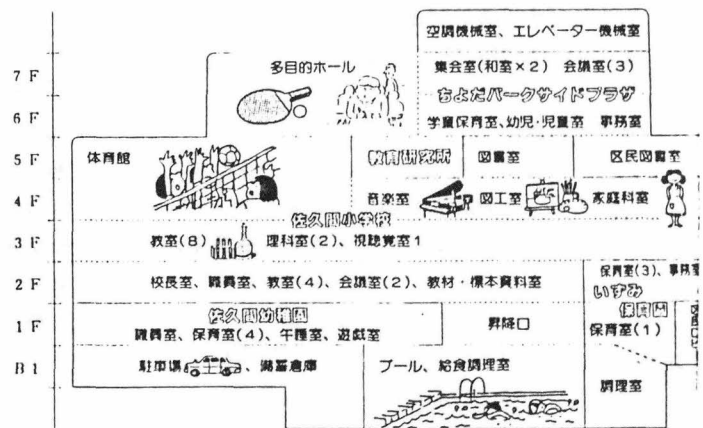 空調機械室、エレベーター機械室
7F
多目的ホール
集会室(和室×2) 会議室(3)
ちよだパークサイドプラザ
6F
学童保育室、幼児・児童室 事務室
5F
体育館
教育研究所
図書室
区民図書室
4F
音楽室
図工室
家庭科室
佐久間小学校
3F
教室(8) 理科室(2)、視聴覚室1
2F
校長室、職員室、教室(4)、会議室(2)、教材・標本資料室
保育室(3)、事務室
いずみ
保育園
佐久間幼稚園
1F
職員室、保育室(4)、午睡室、遊戯室
昇降口
保育室(1)
B1
駐車場、備蓄倉庫
プール、給食調理室
調理室